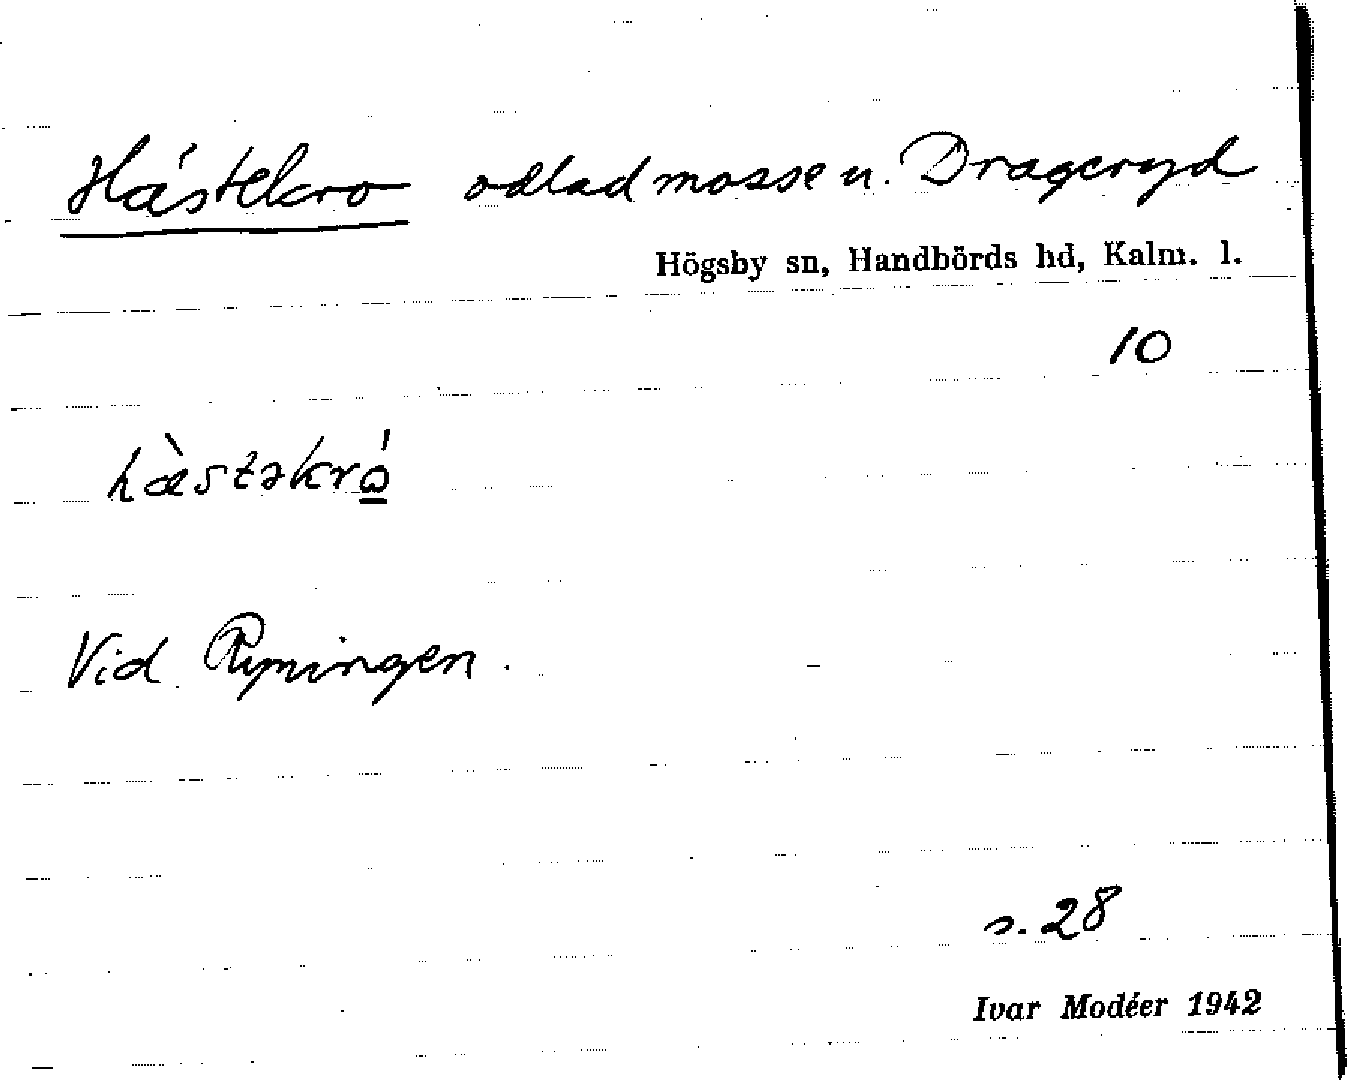 Hästekro odlad mosse u. Drageryd
Högsby sn, Handbörds hd, Kalm. l.
10
hæ̀stəkrώ̲
Vid Ryningen.
s. 28
Ivar Modéer 1942